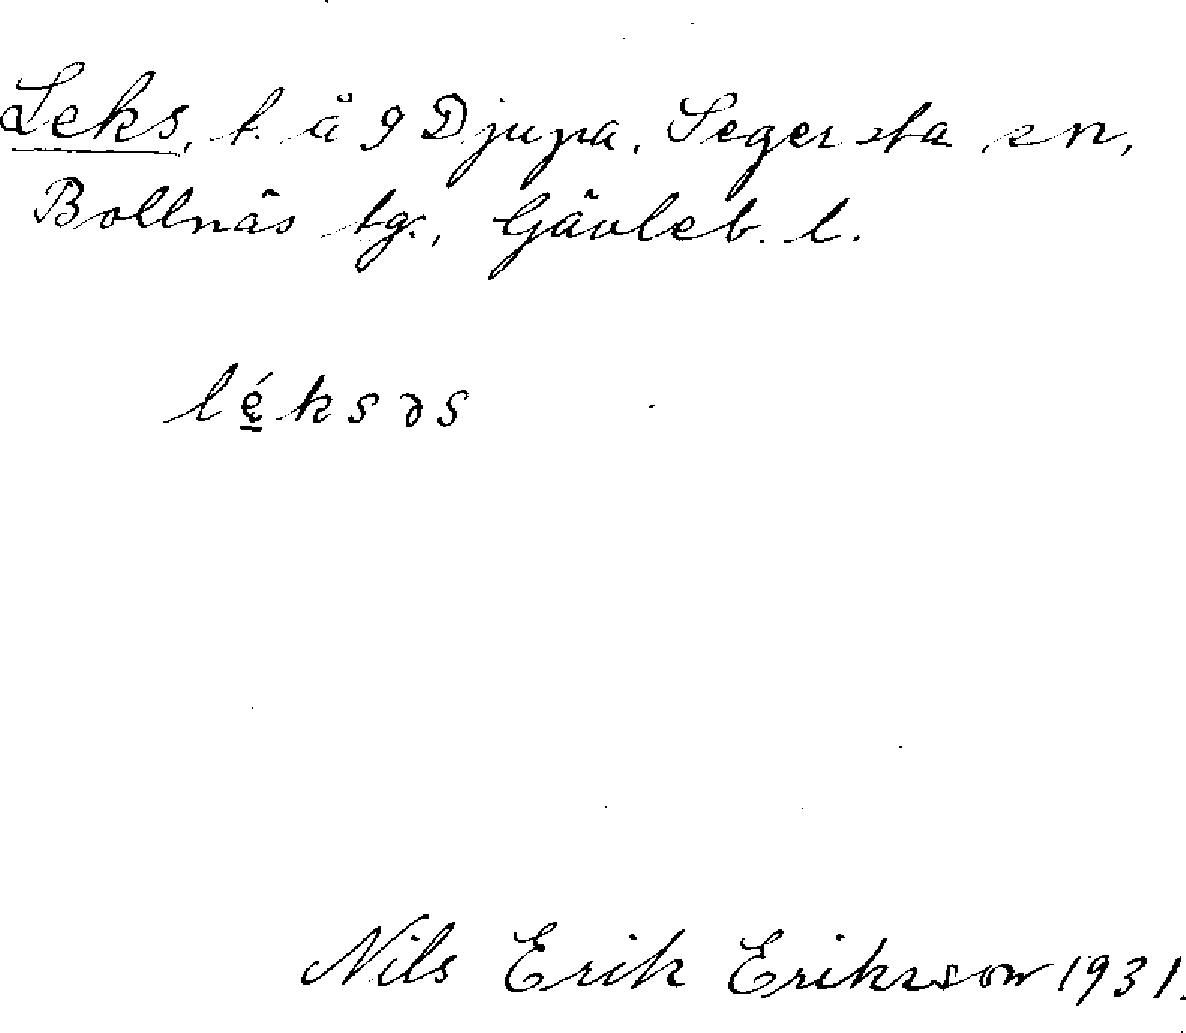 Leks, t. å 9 Djupa, Segersta sn,
Bollnäs tg., Gävleb. l.
lé̱ksəs
Nils Erik Eriksson 1931.